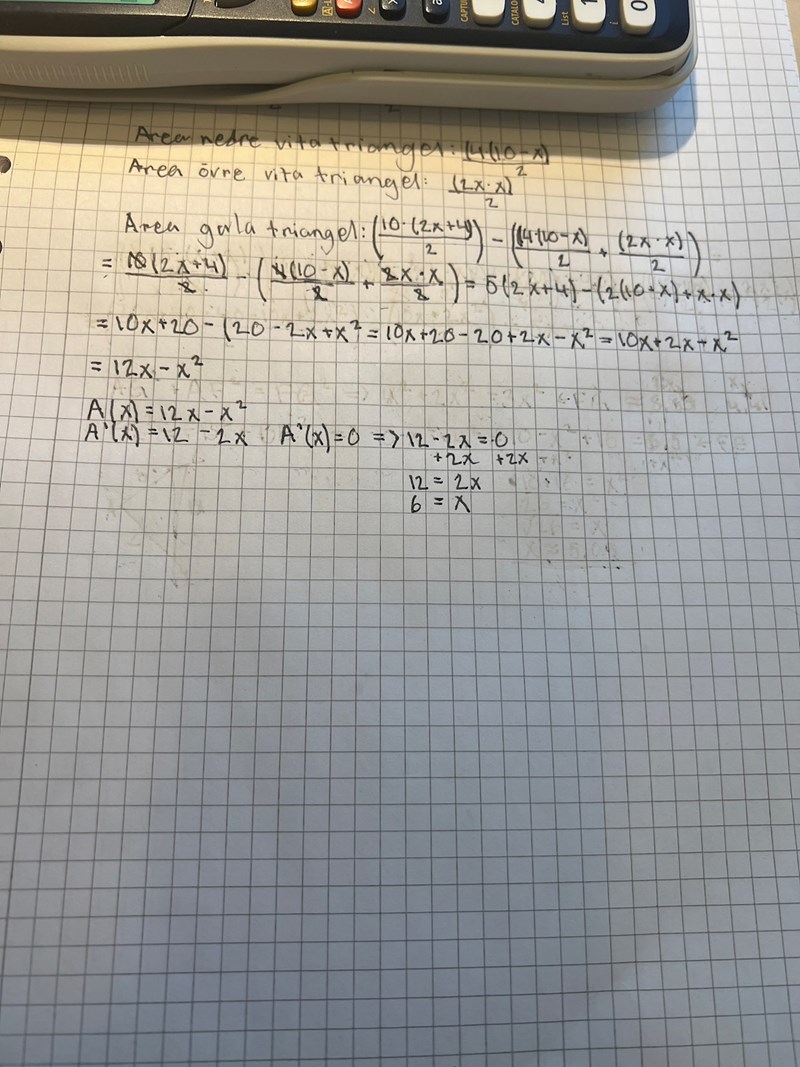 CAPTU
CATALO
List
i
0
1
Area nedre vita triangel: (4(10-x)
Area övre vita triangel: (2x·x) 2
2
Area gula triangel: (10·(2x+4)/2) - ((4(10-x)/2 + (2x·x)/2)
= 10(2x+4)/2 - (4(10-x)/2 + 2x·x/2) = 5(2x+4)-(2(10-x)+x·x)
=10x+20-(20-2x+x² = 10x+20-20+2x-x² = 10x+2x-x²
= 12x-x²
A(x)=12x-x²
A'(x)=12-2x A'(x)=0 => 12-2x=0
+2x +2x
12 = 2x
6 = x